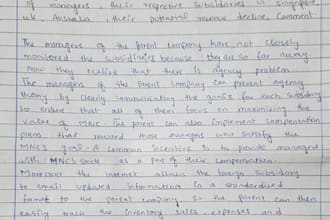 of managers, their respective subsidiaries in singapore,
uk, Australia, their potential revenue decline, Comment
The managers of the parent company have not closely
monitored the subsidiaries because they are so far away.
Now they realise that there is agency problem
The managers of the Parent Company can prevent agency
theory by clearly communicating the goals for each subsidiary
to ensure that all of them focus on maximizing the
value of MNC. The parent can also implement compensation
plans that reward those managers who satisfy the
MNC's goal. A common incentive is to provide managers
with MNC's stock as a part of their compensation.
Moreover the internet allows the foreign subsidiary
to email updated information in a standardised
format to the parent company, so the parent can then
easily track the inventory, sales, expenses and